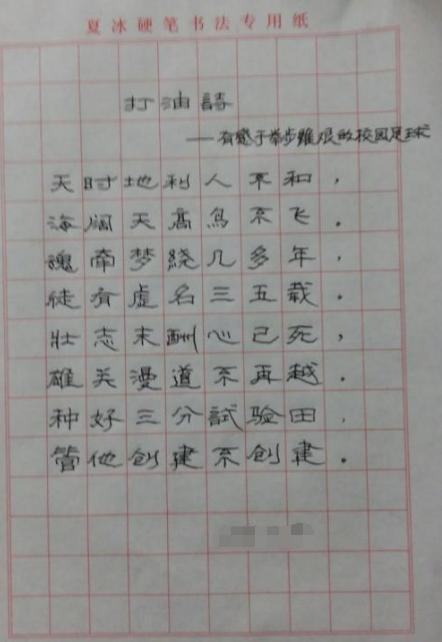 夏冰硬笔书法专用纸
打油詩
——有感于举步難艰的校园足球
天时地利人不和，
海阔天高鸟不飞。
魂牵梦绕几多年，
徒有虚名三五载。
壯志未酬心已死，
雄关漫道不再越。
种好三分試验田，
管他创建不创建。